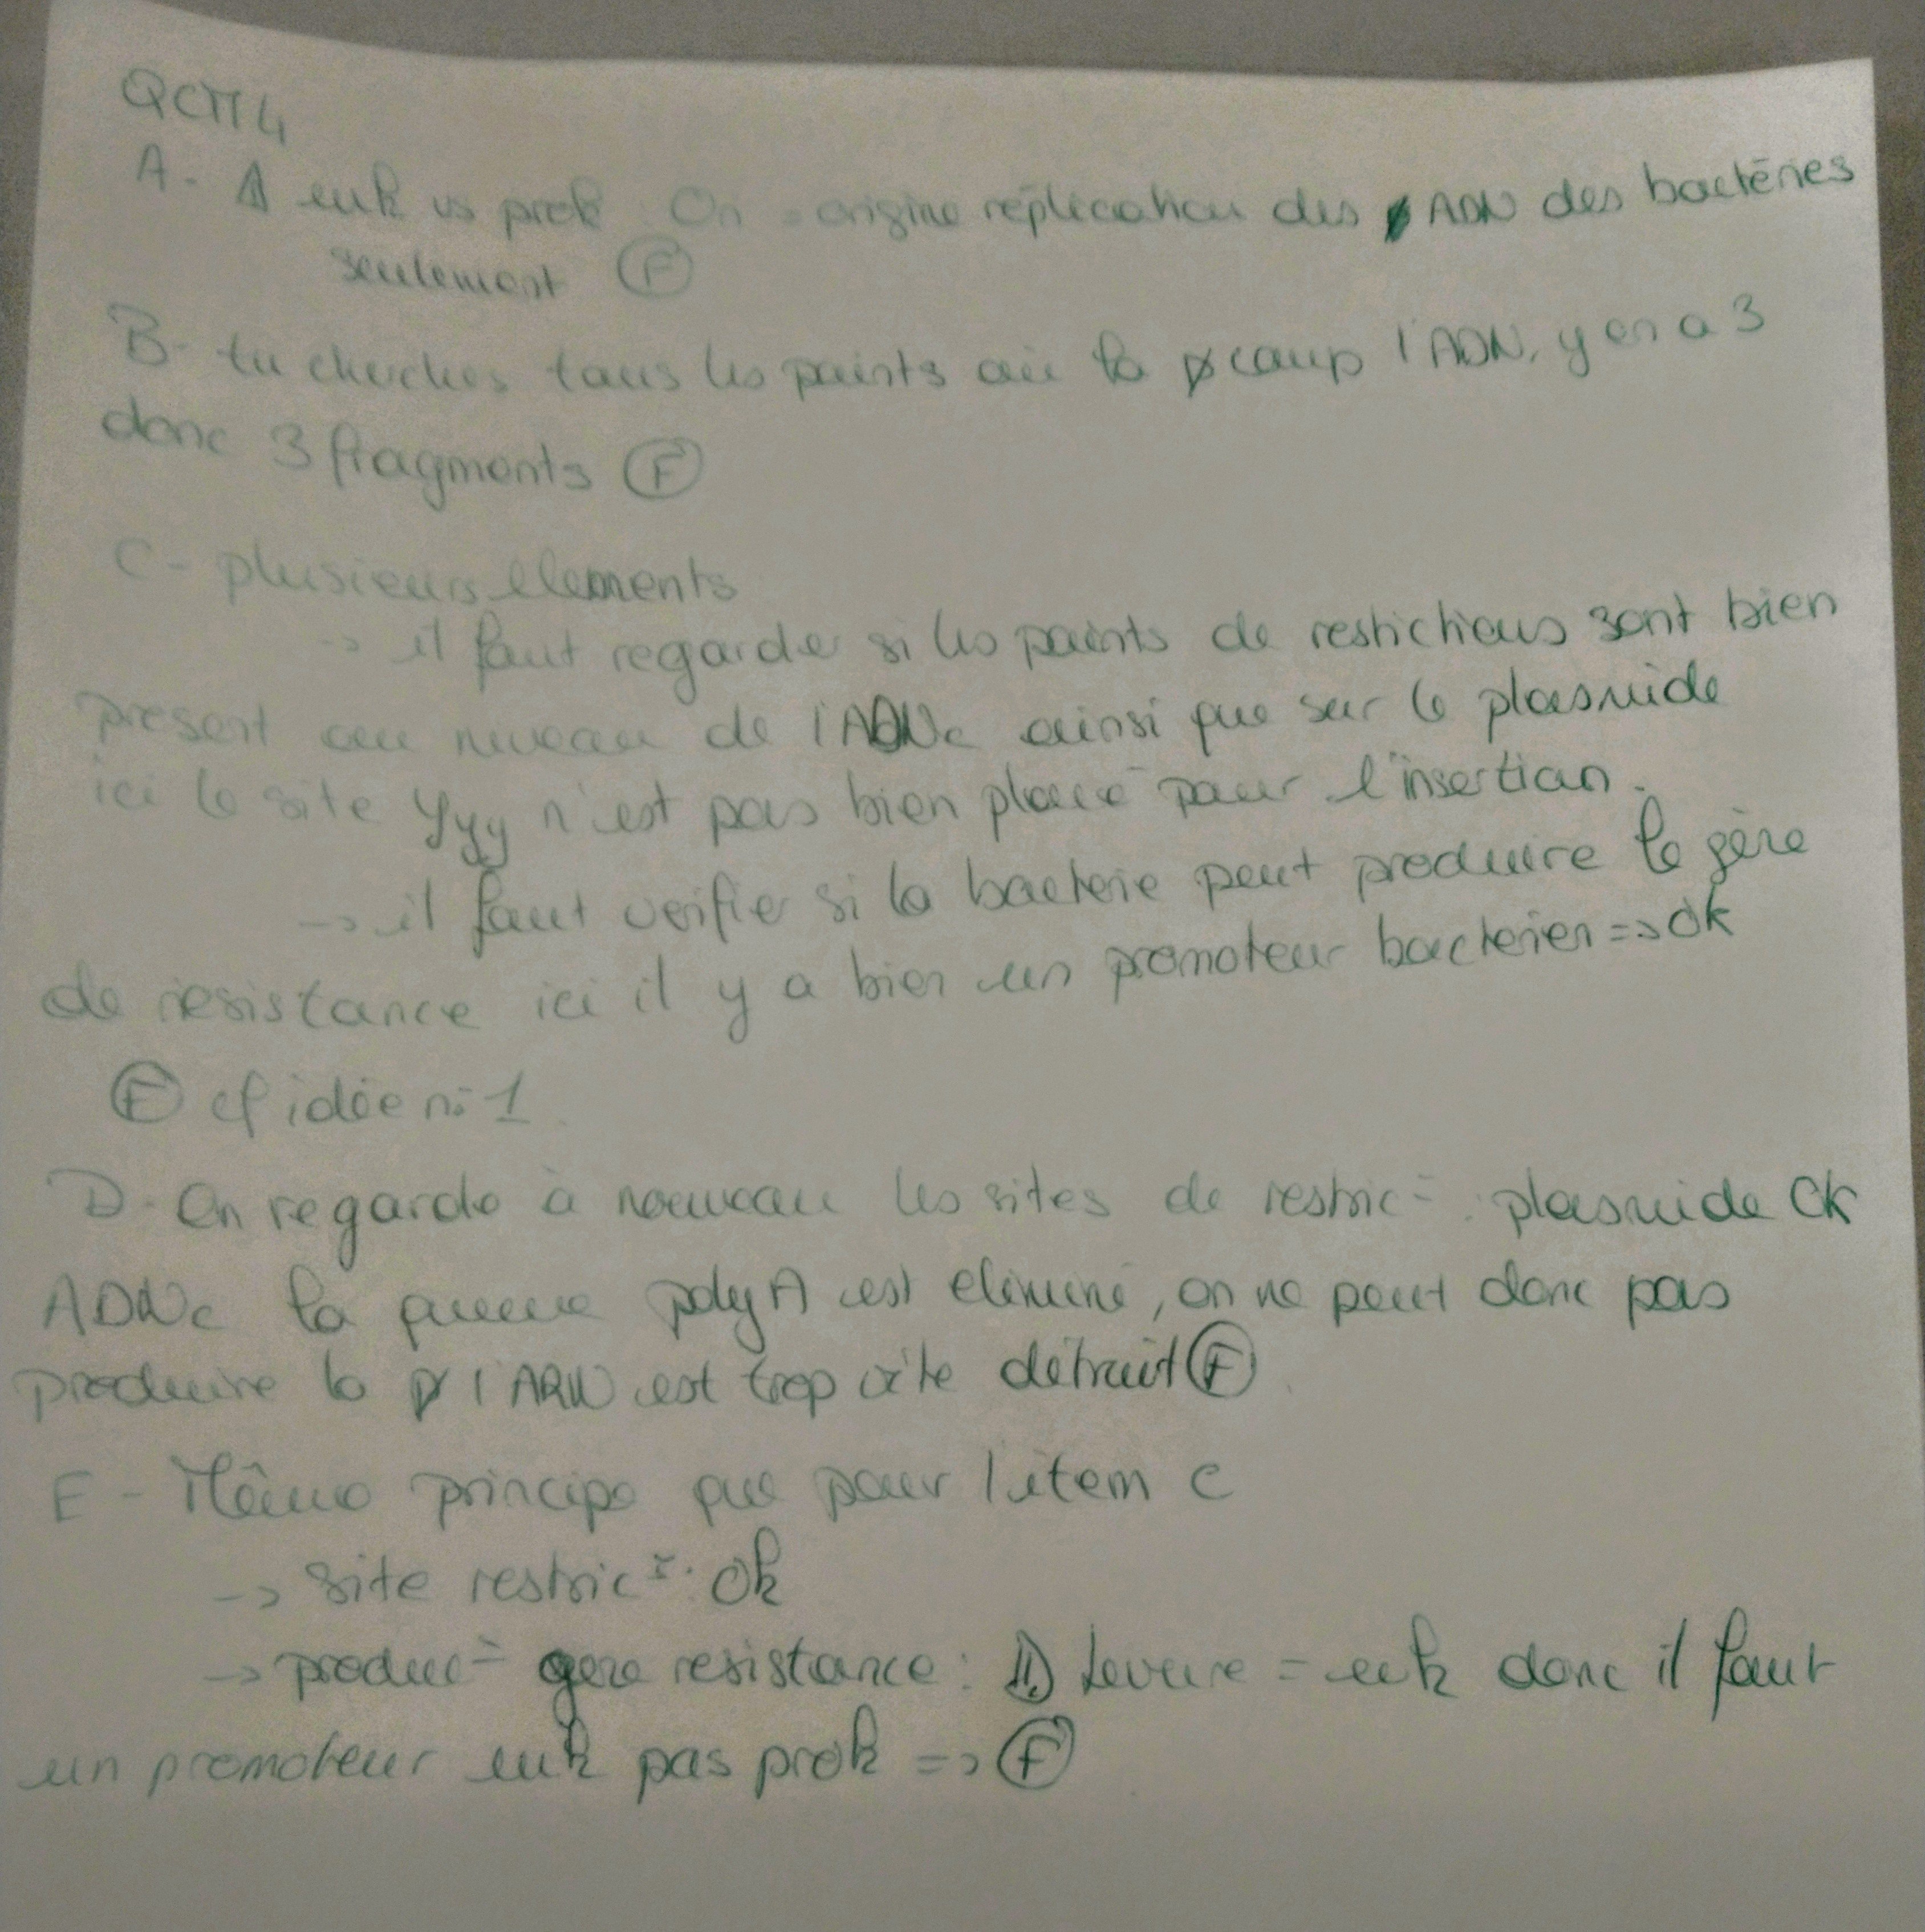 QCM 4
A - ⚠ euk vs prok. On = origine réplication des ADN des bactéries
seulement (F)
B - tu cherches tous les points où la coup l'ADN, y en a 3
donc 3 fragments (F)
C - plusieurs elements
-> il faut regarde si les points de restictions sont bien
present au niveau de l'ADNc ainsi que sur le plasmide
ici le site Yyy n'est pas bien placé pour l'insertion.
-> il faut verifie si la bacterie peut produire le gène
de resistance ici il y a bien un promoteur bacterien => ok
(F) cf idée n°1
D - On regarde à nouveau les sites de restric° : plasmide Ok
ADNc la queue polyA est eliminé, on ne peut donc pas
produire la l'ARN est trop vite détruit (F)
E - Même principe que pour l'item C
-> site restric° : Ok
-> produc° gène resistance : ⚠ Levure = euk donc il faut
un promoteur euk pas prok => (F)